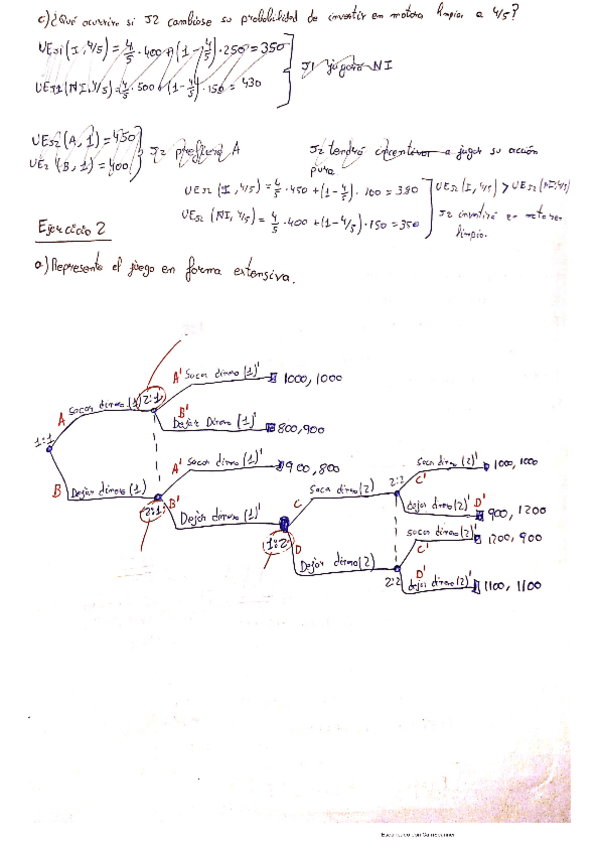 c) ¿Qué ocurrire si J2 cambiose su probabilidad de invertir en motores limpios a 4/5?
UEJ1 (I, 4/5) = 4/5 · 400 + (1 - 4/5) · 250 = 350
UEJ1 (NI, 4/5) = 4/5 · 500 + (1 - 4/5) · 150 = 430
J1 jugara NI
UEJ2 (A, 1) = 450
UE2 (B, 1) = 400
J2 prefiere A
J2 tendrá incentivos a jugar su acción
pura
UEJ2 (I, 4/5) = 4/5 · 450 + (1 - 4/5) · 100 = 380
UEJ2 (NI, 4/5) = 4/5 · 400 + (1 - 4/5) · 150 = 350
UEJ2 (I, 4/5) > UEJ2 (NI, 4/5)
J2 invertirá en motores
limpios.
Ejercicio 2
a) Represente el juego en forma extensiva.
1:1
A Sacar dinero (1)
2:1
A' Sacar dinero (1)' 1000, 1000
B' Dejar Dinero (1)' 800, 900
B Dejar dinero (1)
2:1
A' Sacar dinero (1)' 900, 800
B' Dejar dinero (1)'
1:2
C Saca dinero (2)
2:2
Saca dinero (2)' C' 1000, 1000
dejar dinero (2)' D' 900, 1200
D Dejar dinero (2)
2:2
Sacar dinero (2)' C' 1200, 900
D' dejar dinero (2)' 1100, 1100
Escaneado con CamScanner